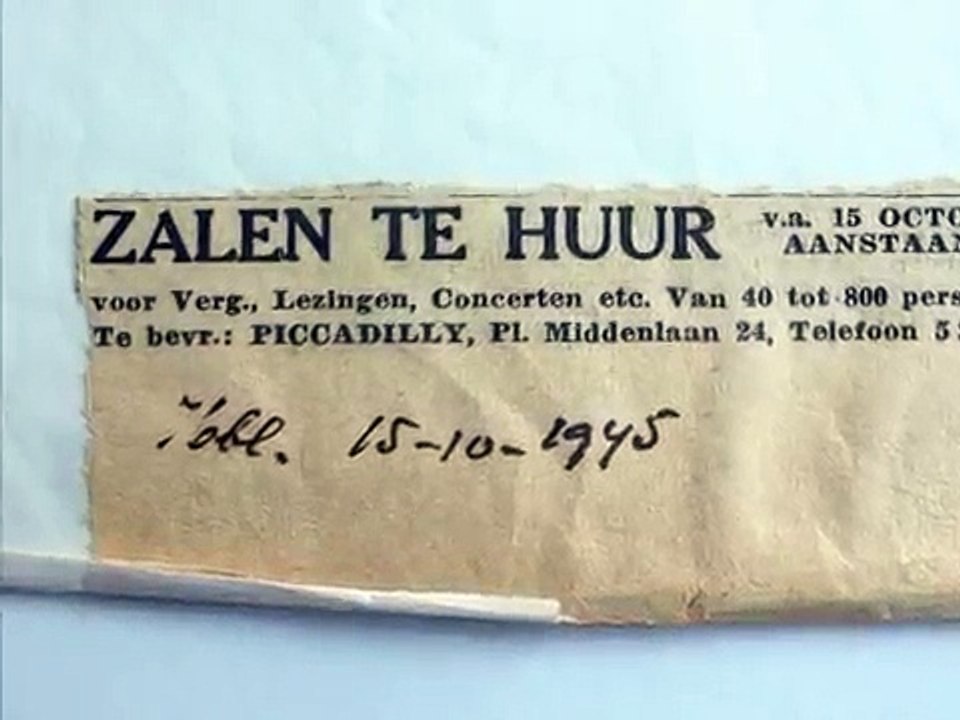 ZALEN TE HUUR
v.a. 15 OCTO
AANSTAAN
voor Verg., Lezingen, Concerten etc. Van 40 tot 800 pers
Te bevr.: PICCADILLY, Pl. Middenlaan 24, Telefoon 5
15-10-1945